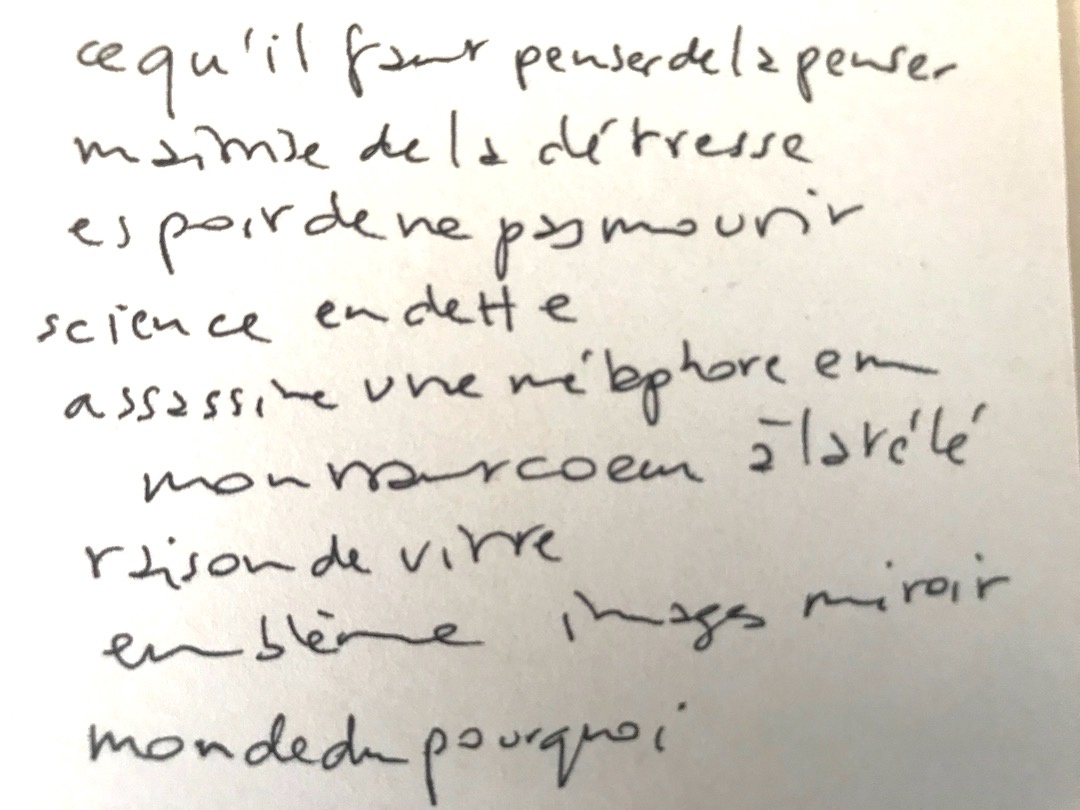 ce qu'il faut penser de la penser
maîtrise de la détresse
espoir de ne pas mourir
science en dette
assassine une métaphore em
mon coeur à la télé
raison de vivre
emblème images miroir
monde du pourquoi